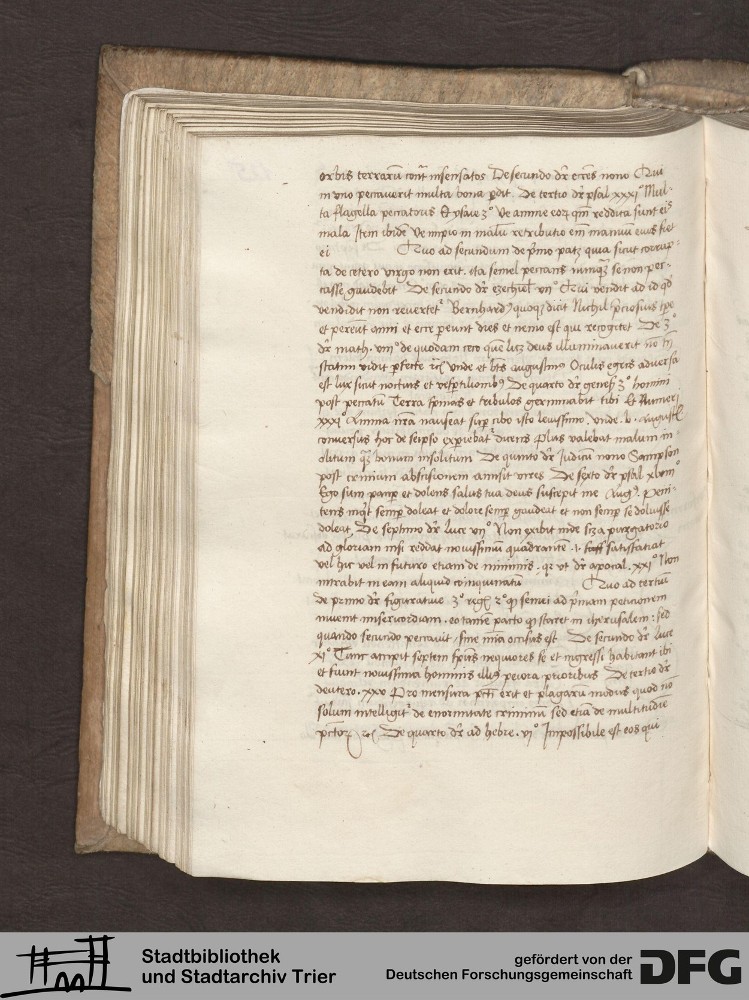 orbis terrarū cont̄ insensatos De secundo dr̄ eccēs nono Qui
in vno peccauerit multa bona ꝑdit. De tertio dr̄ psal xxxi° Mul-
ta flagella peccatoris Et ysaie 3° Ve anime eoꝝ qm̄ reddita sunt eis
mala Item ibidē Ve impio in malū retributio em̄ manuū eius fiet
ei Quo ad secundum de pͥmo patꝫ quia sicut corrup-
ta de cetero virgo non erit. ita semel peccans nunqͣꝫ se non pec-
casse gaudebit De secundo dr̄ ezechiel vn° Qui vendit ad id qd̄
vendidit non reuertetͬ Bernhardꝰ quoqꝫ dicit Nichil p̄ciosius tp̄e
et pereūt anni et ecce pereunt dies et nemo est qui recogitet De 3°
dr̄ math. vin° de quodam ceco quē licꝫ deus illuminauerit nō tn̄
statim vidit ꝑfecte Vnde et bt̄s augustinꝰ Oculis egris aduersa
est lux sicut noctuis et vesꝑtilionibꝰ De quarto dr̄ geneš 3° homini
post peccatū Terra spinas et tribulos germinabit tibi Et Numeri
xxxi° Anima nr̄a nauseat suꝑ cibo isto leuissimo, vnde .b. Augustꝰ
conuersus hoc de seipso exꝑiebatͬ dicens Plus valebat malum in-
olitum qͣꝫ bonum insolitum De quinto dr̄ Judicū nono Sampson
post crinium abscisionem amisit vires De sexto dr̄ psal xlvin°
Ego sum pauꝑ et dolens salus tua deus suscepit me Augꝰ. Peni-
tens inqͥt semꝑ doleat et de dolore semꝑ gaudeat et non semꝑ se doluisse
doleat, De septimo dr̄ luce vn° Non exibit inde de purgatorio
ad gloriam nisi reddat nouissimū quadrantē .i. satisfaciat
vel hic vel in futuro etiam de minimis . qꝛ vt dr̄ apocal . xxi° Non
intrabit in eam aliquid coinquinatū Quo ad tertiū
de pͥmo dr̄ figuratiue 3° regꝝ 2° qd̄ semei ad pͥmam peticionem
inuenit misericordiam . eo tamē pacto qd̄ staret in iherusalem : sed
quando secundo peccauit , sine mīa occisus est De secundo dr̄ luce
xi° Tunc accipit septem spūs nequiores se et ingressi habitant ibi
et fiunt nouissima hominis illiꝰ peiora prioribus De tertio dr̄
deutero . xxv Pro mensura pctī erit et plagarū modus quod nō
solum intelligitͬ de enormitate criminū sed etiā de multitudīe
pctōꝝ ⁊c̄ De quarto dr̄ ad hebre . vi° Impossibile est eos qui
Stadtbibliothek
und Stadtarchiv Trier
gefördert von der
Deutschen Forschungsgemeinschaft
DFG